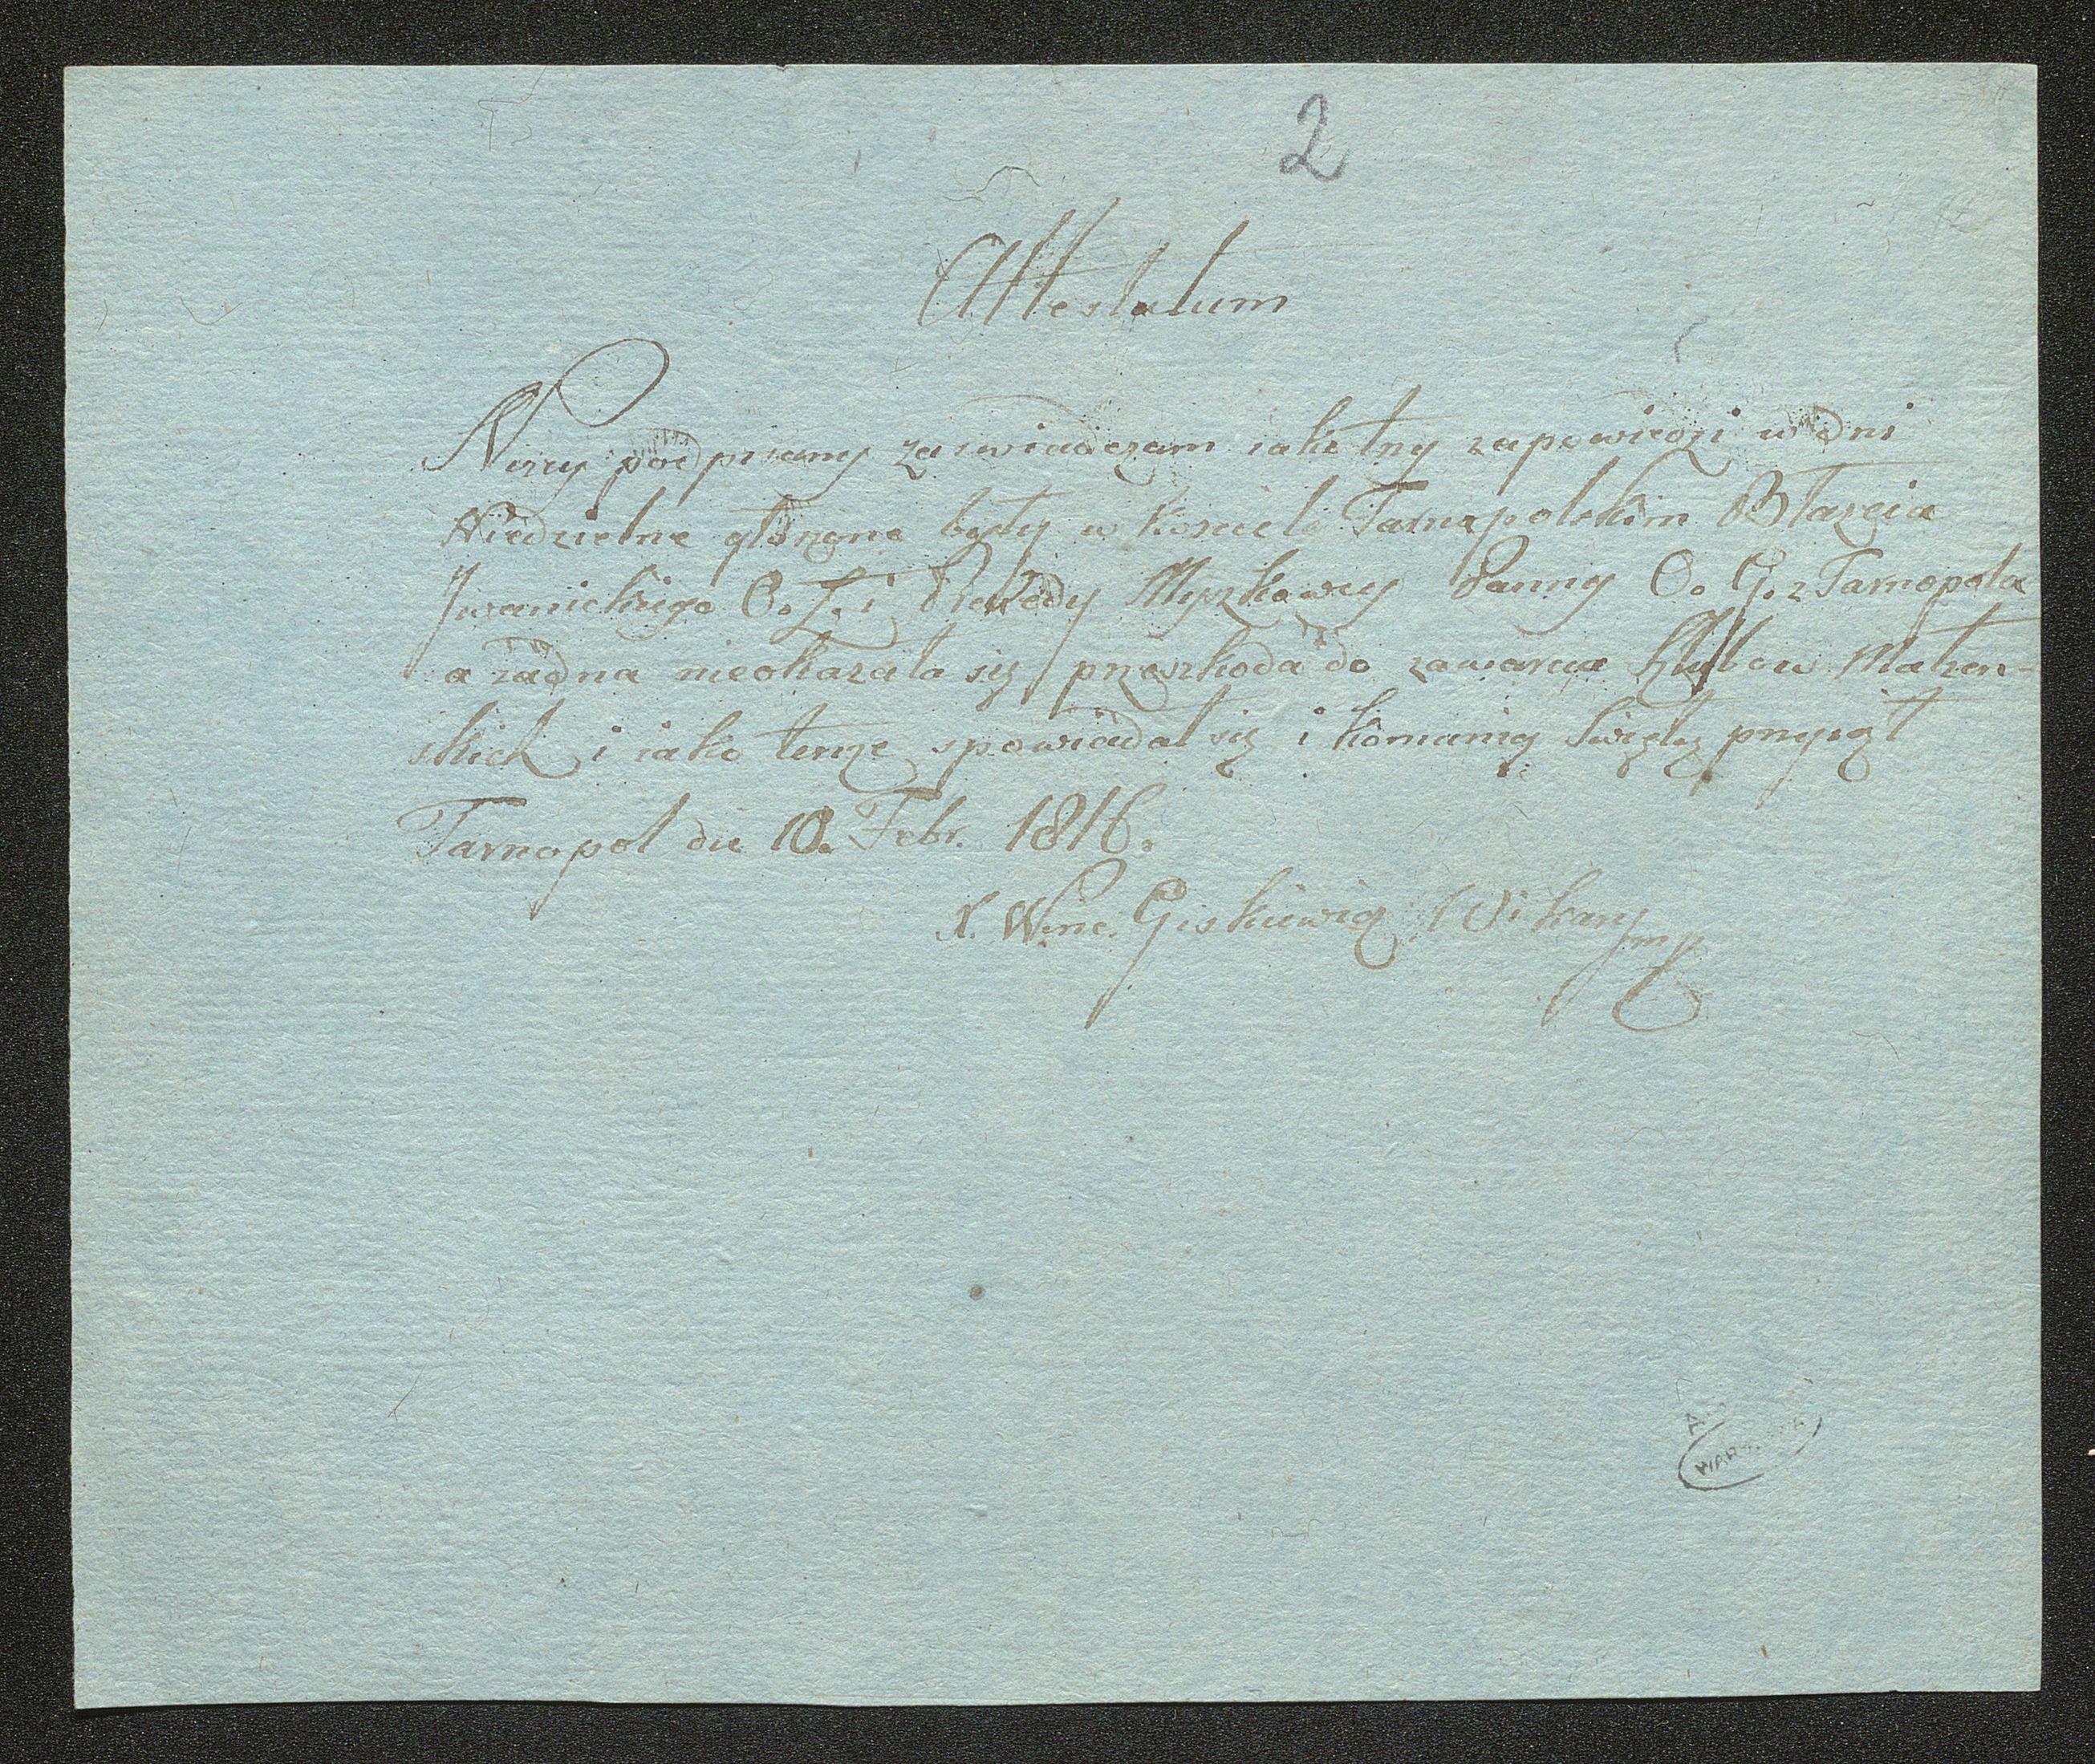 2
Attestatum
Niżey podpisany zaswiadczam iako trzy zapowiedzi w dni
Niedzielne głoszone były w kosciele Tarnopolskim Błazeia
Jwanickiego O. Ł. i Myszkowey Panny O. G. z Tarnopola
a żadna nieokazała się przeszkoda do zawarcia slubow Małzen-
skich i iako tenze spowiadał się i komunią swiętę przyiął
Tarnopol die 10. Febr. 1816.
X. Winc. Giskiewicz Wikary mp
WARSZAWA